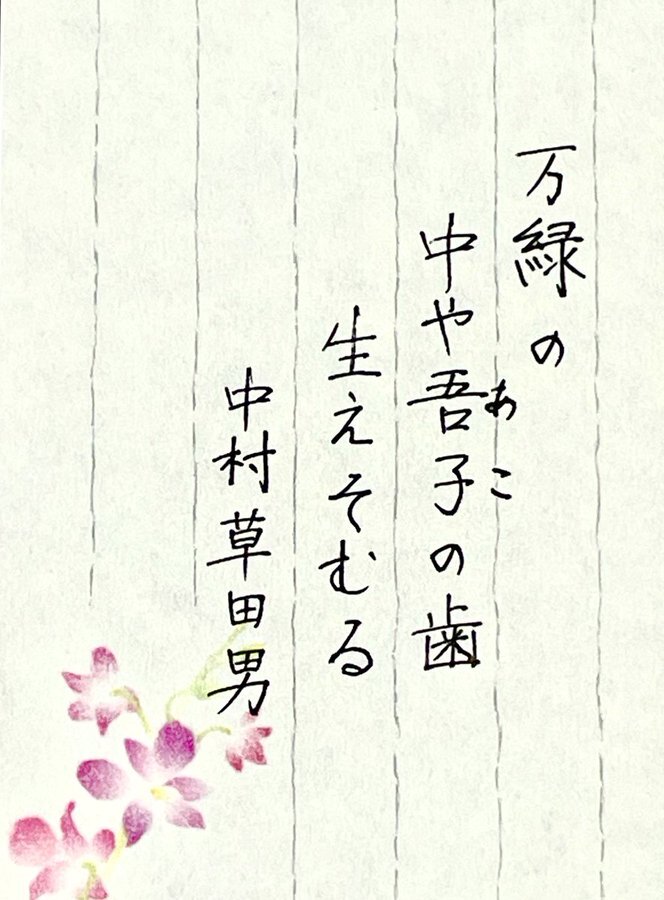 万緑の
中や吾子の歯
あこ
生えそむる
中村草田男